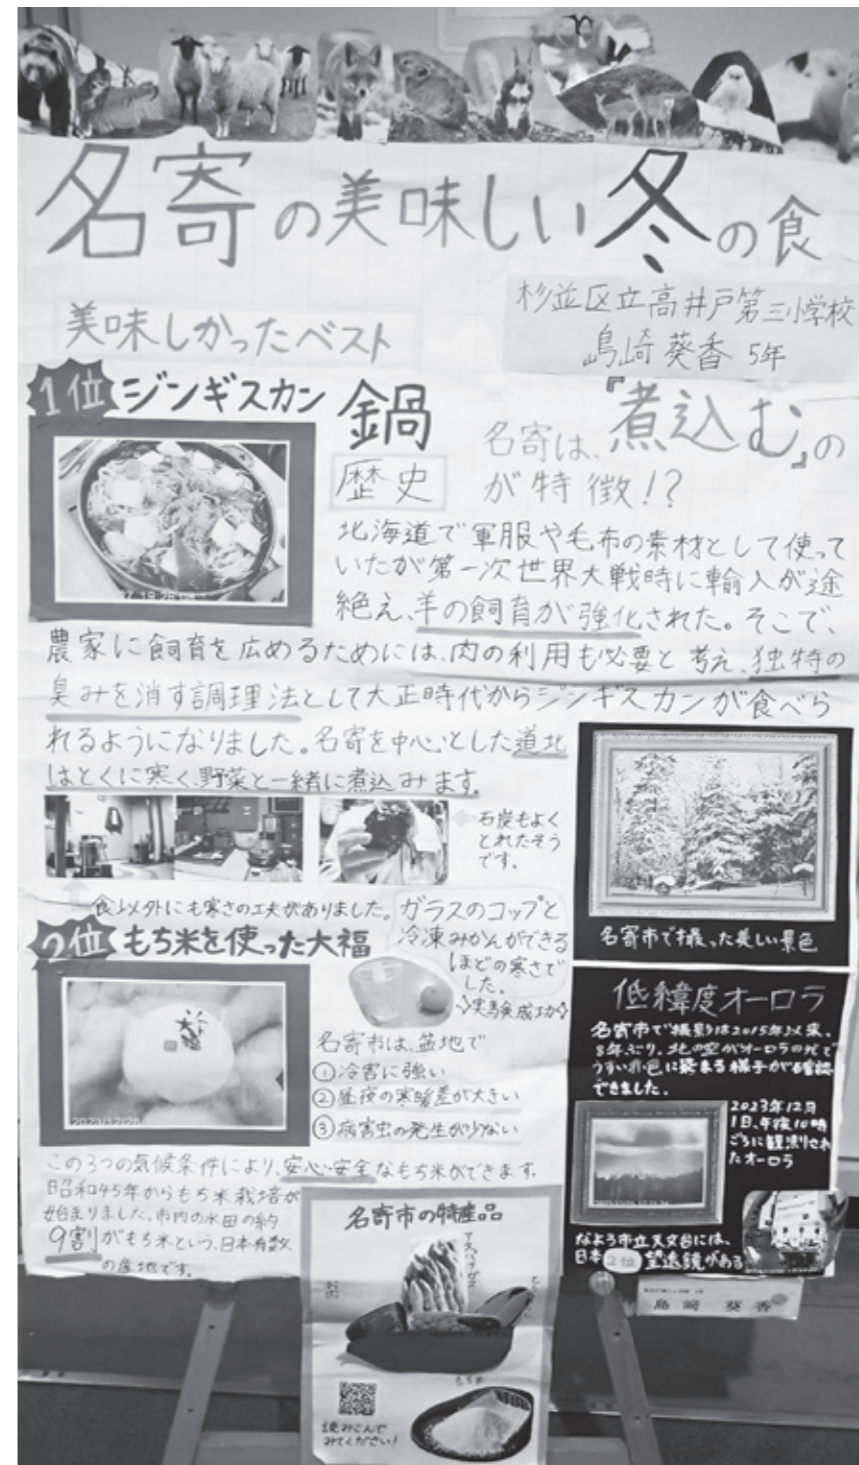 名寄の美味しい冬の食
杉並区立高井戸第三小学校
島崎葵香 5年
美味しかったベスト
1位 ジンギスカン鍋
名寄は、『煮込む』の
が特徴!?
歴史
北海道で軍服や毛布の素材として使って
いたが第一次世界大戦時に輸入が途
絶え、羊の飼育が強化された。そこで、
農家に飼育を広めるためには、肉の利用も必要と考え、独特の
臭みを消す調理法として大正時代からジンギスカンが食べら
れるようになりました。名寄を中心とした道北
はとくに寒く、野菜と一緒に煮込みます。
石炭もよく
とれたそう
です。
食以外にも寒さの工夫がありました。
ガラスのコップと
冷凍みかんができる
ほどの寒さで
した。
実験成功
2位 もち米を使った大福
名寄市は、盆地で
①冷害に強い
②昼夜の寒暖差が大きい
③病害虫の発生が少ない
この3つの気候条件により、安心・安全なもち米ができます。
昭和45年からもち米栽培が
始まりました。市内の水田の約
9割がもち米という、日本有数
の産地です。
名寄市で撮った美しい景色
低緯度オーロラ
名寄市で撮影は2015年以来、
8年ぶり。北の空がオーロラの光で
うすい赤色に染まる様子が確認
できました。
2023年12月
1日、午後10時
ごろに観測され
たオーロラ
なよろ市立天文台には、
日本2位望遠鏡がある
島崎葵香
名寄市の特産品
アスパラガス
もち米
読みこんで
みてください!